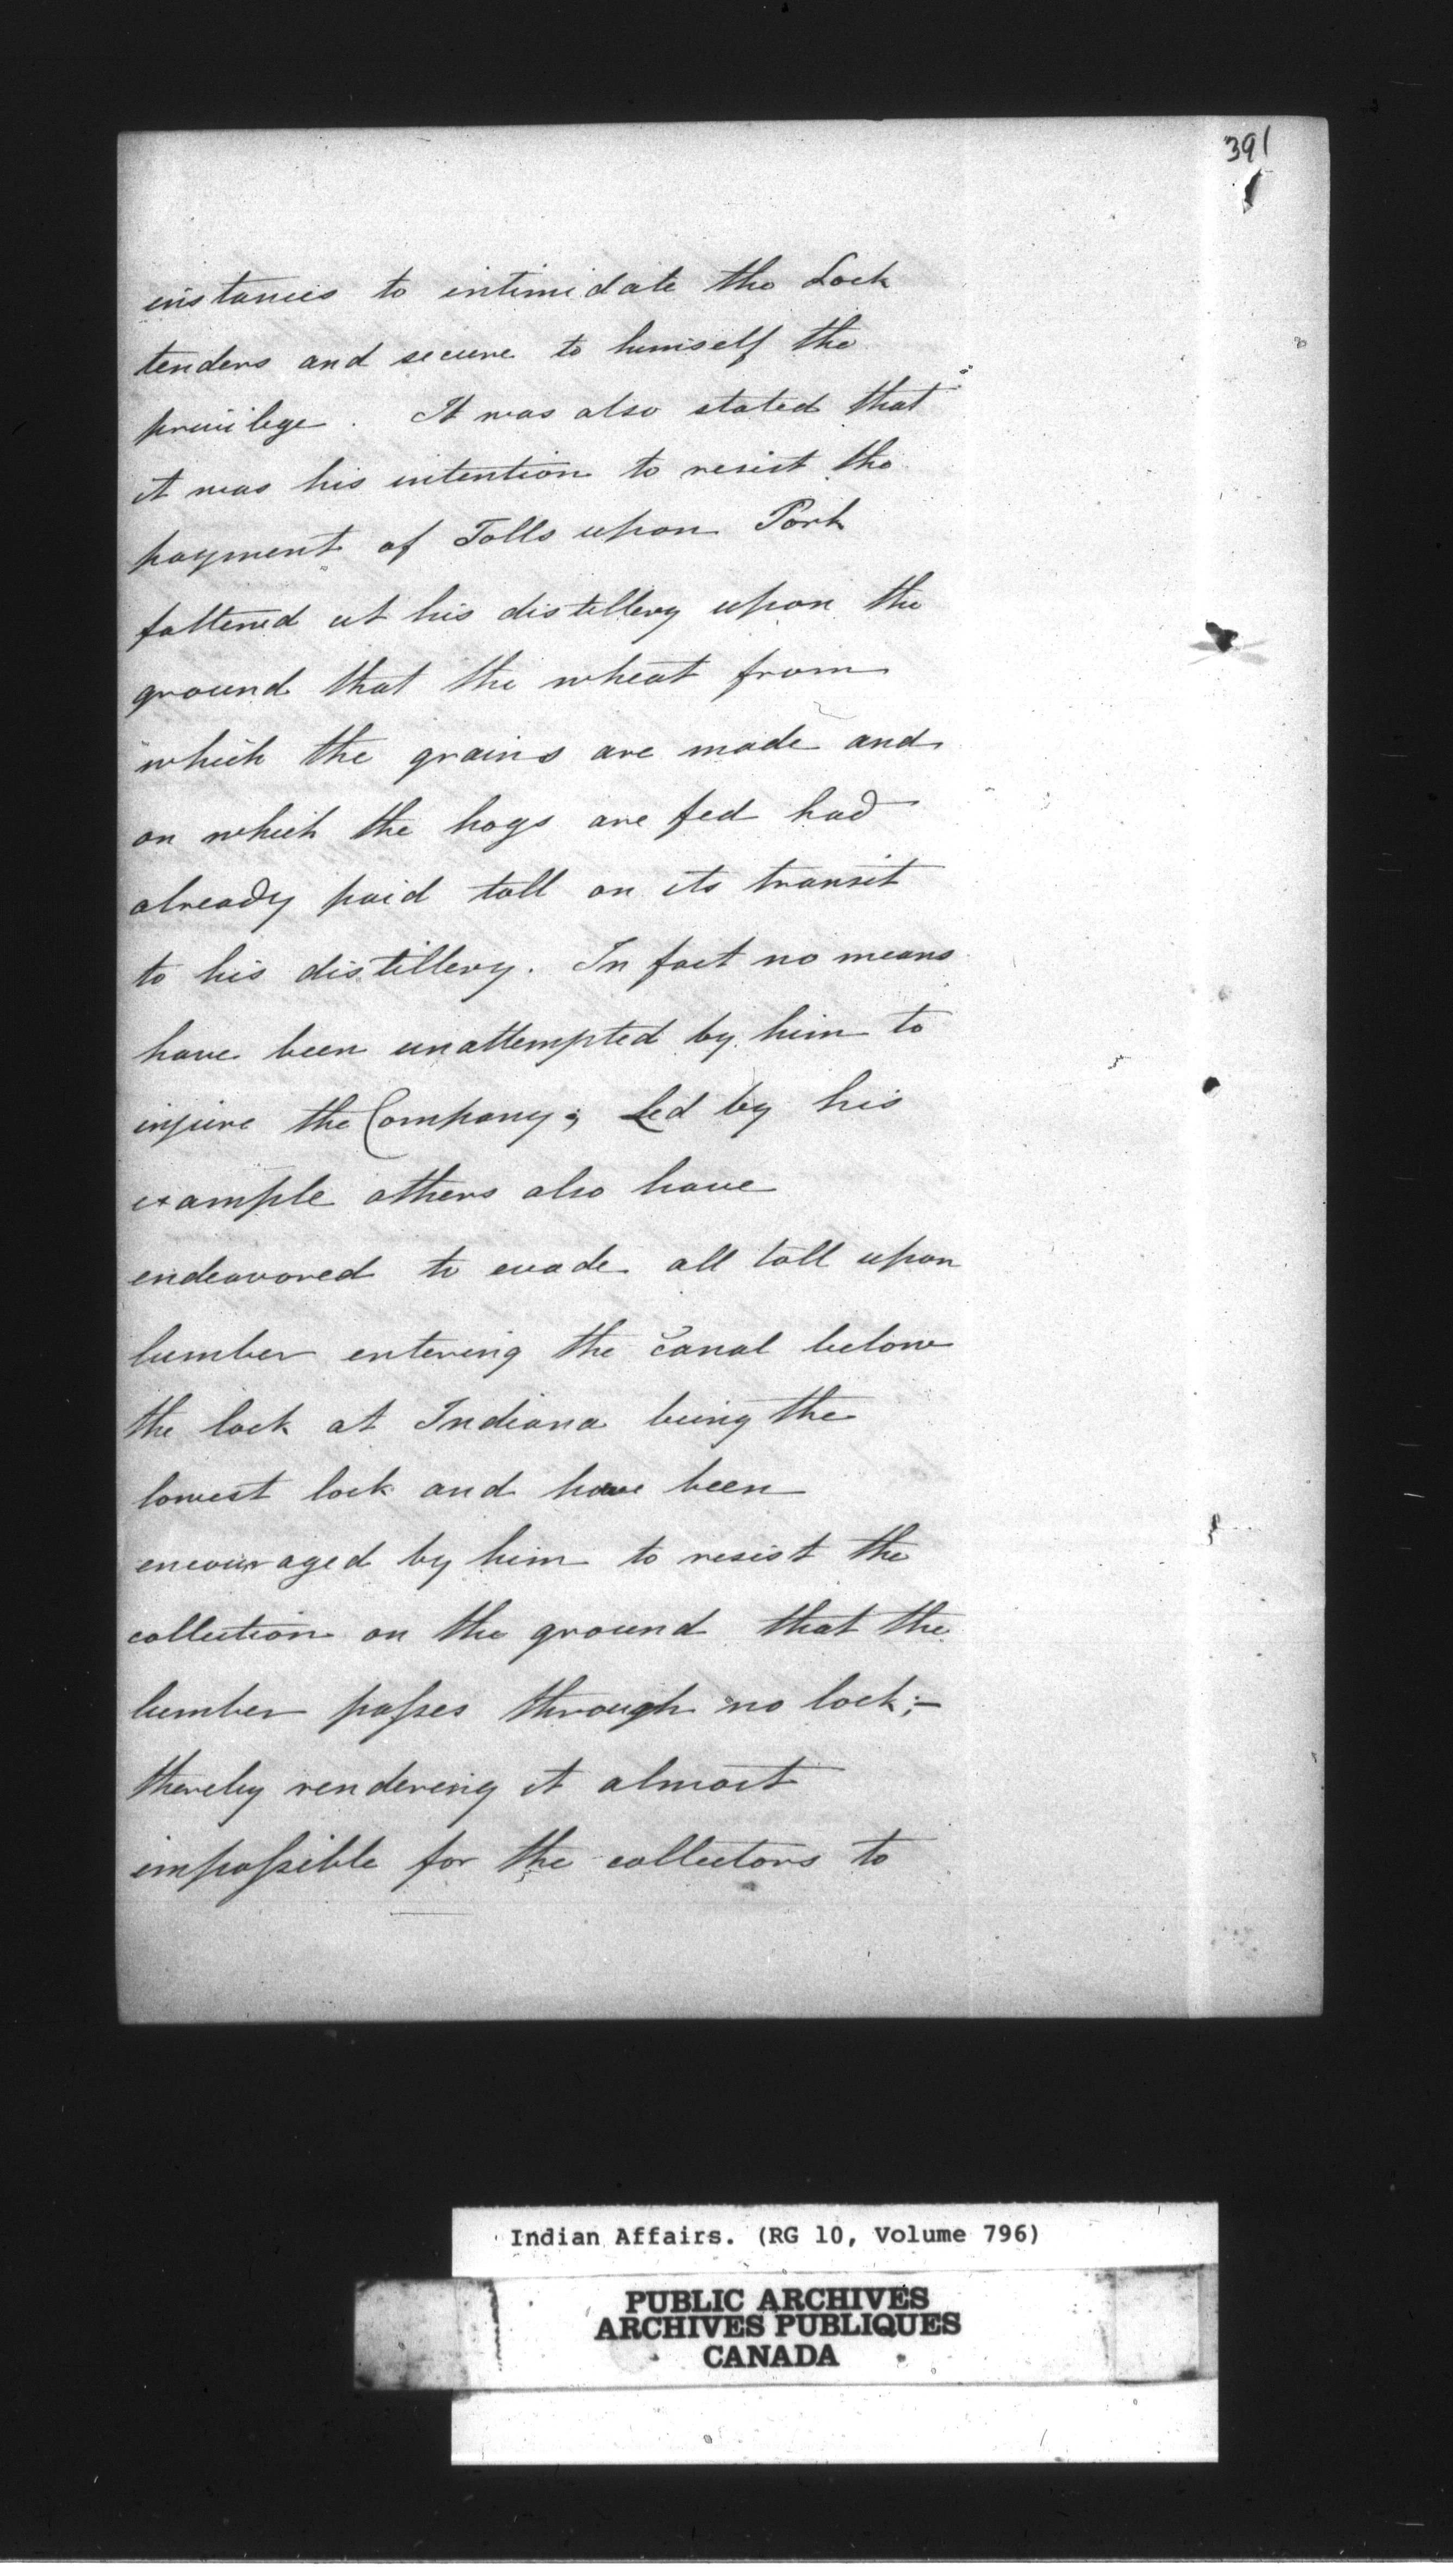 391
instances to intimidate the Lock
tenders and secure to himself the
privilege. It was also stated that
it was his intention to resist the
payment of Tolls upon Pork
fattened at his distillery upon the
ground that the wheat from
which the grains are made and
on which the hogs are fed had
already paid toll on its transit
to his distillery. In fact no means
have been unattempted by him to
injure the Company; Led by his
example others also have
endeavored to evade all toll upon
lumber entering the canal below
the lock at Indiana being the
lowest lock and have been
encouraged by him to resist the
collection on the ground that the
lumber passes through no lock;—
thereby rendering it almost
impossible for the collectors to
Indian Affairs. (RG 10, Volume 796)
PUBLIC ARCHIVES
ARCHIVES PUBLIQUES
CANADA